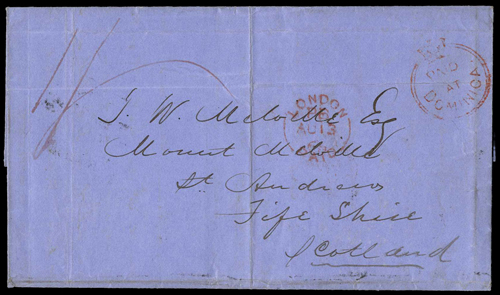 1/
PAID
AT
DOMINICA
LONDON
AU 13
PAID
J. W. Melville Esq
Mount Melville
St Andrews
Fife Shire
Scotland